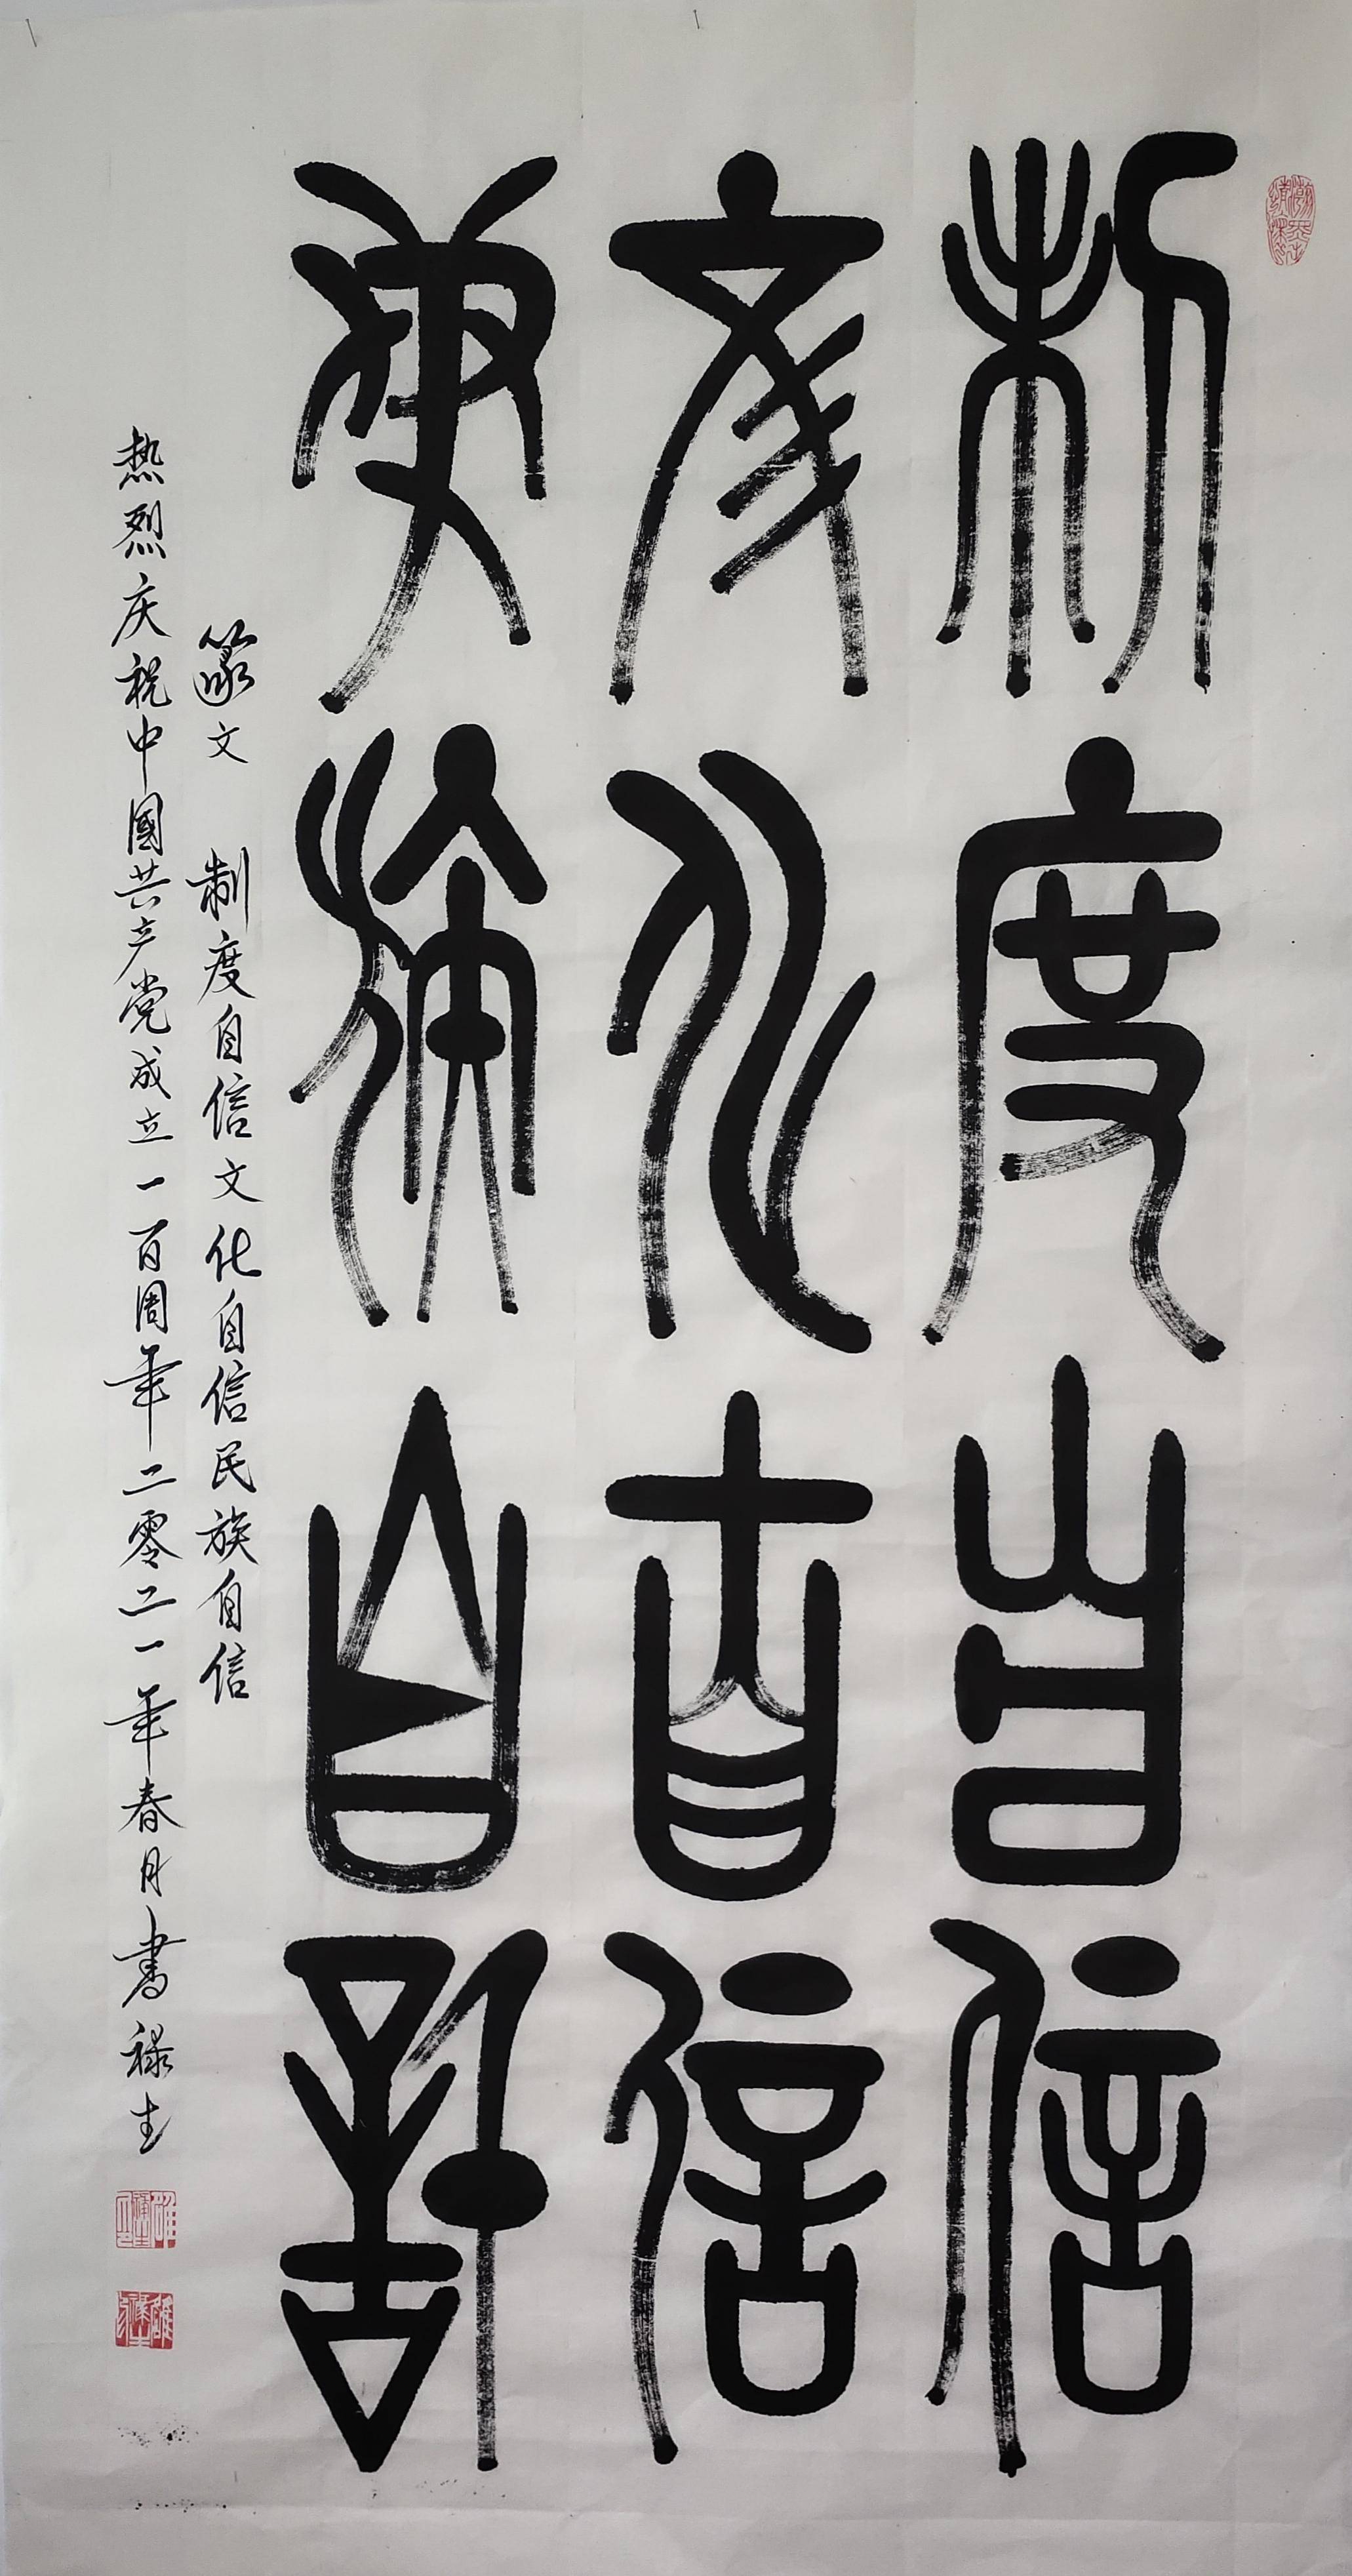 制度自信
文化自信
民族自信
篆文 制度自信文化自信民族自信
热烈庆祝中國共产党成立一百周年二零二一年春月書禄生